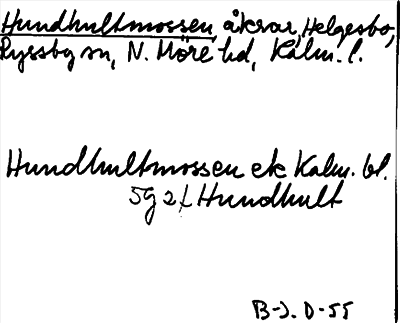 Hundhultmossen, åkrar, Helgesbo,
Ryssby sn, N. Möre hd, Kalm. l.
Hundhultmossen ek Kalm. bl.
5g 2f Hundhult
B-J. D-55